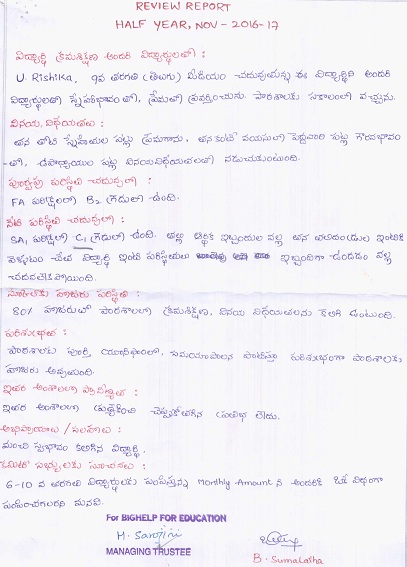 REVIEW REPORT
HALF YEAR, NOV - 2016-17
విద్యార్థి క్రమశిక్షణ అందరి విద్యార్థులతో :
U. Rishika, 9వ తరగతి (తెలుగు) మీడియం చదువుచున్న ఈ విద్యార్థిని అందరి
విద్యార్థులతో స్నేహభావంతో, ప్రేమతో ప్రవర్తించును. పాఠశాలకు సకాలంలో వచ్చును.
వినయ, విధేయతలు :
తన తోటి స్నేహితుల పట్ల ప్రేమగాను, తనకంటే వయసులో పెద్దవారి పట్ల గౌరవభావం
తో, ఉపాధ్యాయుల పట్ల వినయవిధేయతలతో నడుచుకుంటుంది.
పూర్వపు పరిస్థితి చదువులో :
FA పరీక్షలలో B2 గ్రేడులో ఉంది.
నేటి పరిస్థితి చదువులో :
SA1 పరీక్షలో C1 గ్రేడులో ఉంది. తల్లి ఆర్థిక ఇబ్బందుల వల్ల తన
వెళ్ళటం చేత విద్యార్థి ఇంటి పరిస్థితులు ఇబ్బందిగా ఉండడం వల్ల
చదవలేకపోయింది.
హాజరు పరిస్థితి :
80% హాజరుతో పాఠశాలలో క్రమశిక్షణ, వినయ విధేయతలను కలిగి ఉంటుంది.
పరిశుభ్రత :
పాఠశాలకు పూర్తి యూనిఫాంలో, సమయపాలన పాటిస్తూ పరిశుభ్రంగా పాఠశాలకు
హాజరు అవుతుంది.
ఇతర అంశాలలో ప్రావీణ్యత :
ఇతర అంశాలలో చెప్పుకోదగిన ప్రతిభ లేదు.
అభిప్రాయాలు / సలహాలు :
మంచి స్వభావం కలిగిన విద్యార్థి.
కమిటీ సభ్యులకు సూచనలు :
6-10 వ తరగతి విద్యార్థులకు పంపిస్తున్న Monthly Amount ని అందరికీ ఒకే విధంగా
పంపించగలరని మనవి.
For BIGHELP FOR EDUCATION
M. Sarojini
MANAGING TRUSTEE
B. Sumalatha